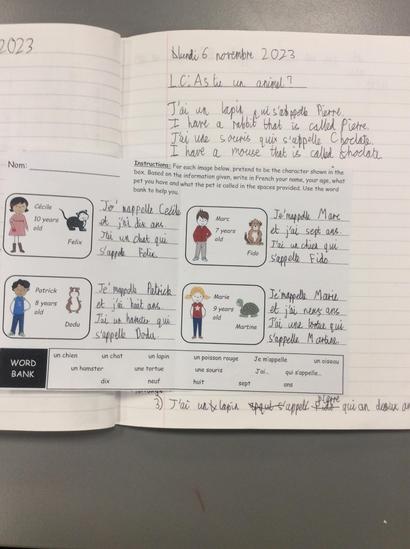 2023
Lundi 6 novembre 2023
L.C: As tu un animal?
J'ai un lapin qui s'appelle Pierre.
I have a rabbit that is called Pierre.
J'ai une souris qui s'appelle Choclate.
I have a mouse that is called Choclate.
Nom:
Instructions: For each image below, pretend to be the character shown in the
box. Based on the information given, write in French your name, your age, what
pet you have and what the pet is called in the spaces provided. Use the word
bank to help you.
Cécile
10 years
old
Felix
Je m'appelle Cecile
et j'ai dix ans.
J'ai un chat qui
s'appelle Felix.
Marc
7 years
old
Fido
Je m'appelle Marc
et j'ai sept ans.
J'ai un chien qui
s'appelle Fido.
Patrick
8 years
old
Dodu
Je m'appelle Patrick
et j'ai huit ans.
J'ai un hamster qui
s'appelle Dodu.
Marie
9 years
old
Martine
Je m'appelle Marie
et j'ai neuf ans.
J'ai une tortue qui
s'appelle Martine.
WORD
BANK
un chien un chat un lapin un poisson rouge Je m'appelle un oiseau
un hamster une tortue une souris J'ai.. qui s'appelle...
dix neuf huit sept ans
pierre
3) J'ai un lapin s'appelle Fido qui an